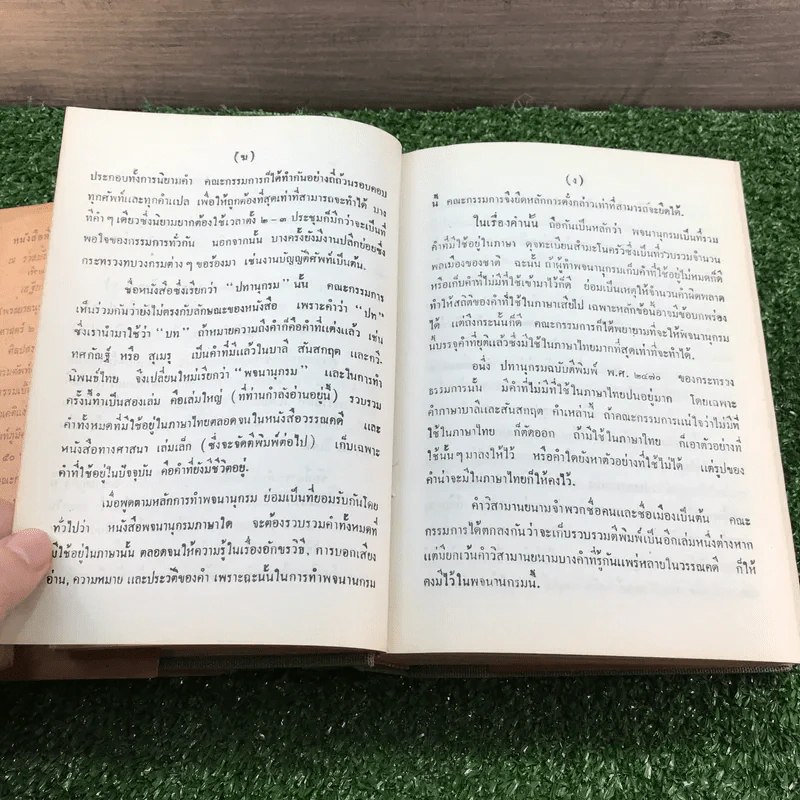 (ฆ)
ประกอบทั้งการนิยามคำ คณะกรรมการก็ได้ทำกันอย่างถี่ถ้วนรอบคอบ
ทุกศัพท์และทุกคำแปล เพื่อให้ถูกต้องที่สุดเท่าที่สามารถจะทำได้ บาง
ทีคำๆ เดียวซึ่งนิยามยากต้องใช้เวลาตั้ง ๒ – ๓ ประชุมก็มีกว่าจะเป็นที่
พอใจของกรรมการทั่วกัน นอกจากนั้น บางครั้งยังมีงานปลีกย่อยซึ่ง
กระทรวงทบวงกรมต่างๆ ขอร้องมา เช่นงานบัญญัติศัพท์เป็นต้น.
ชื่อหนังสือซึ่งเรียกว่า “ปทานุกรม” นั้น คณะกรรมการ
เห็นร่วมกันว่ายังไม่ตรงกับลักษณะของหนังสือ เพราะคำว่า “ปท”
ซึ่งเรานำมาใช้ว่า “บท” ถ้าหมายความถึงคำก็คือคำที่แต่งแล้ว เช่น
ทศกัณฐ์ หรือ สุเมรุ เป็นคำที่มีแล้วในบาลี สันสกฤต และกวี-
นิพนธ์ไทย จึงเปลี่ยนใหม่เรียกว่า “พจนานุกรม” และในการทำ
ครั้งนี้ทำเป็นสองเล่ม คือเล่มใหญ่ (ที่ท่านกำลังอ่านอยู่นี้) รวบรวม
คำทั้งหมดที่มีใช้อยู่ในภาษาไทยตลอดจนในหนังสือวรรณคดี และ
หนังสือทางศาสนา เล่มเล็ก (ซึ่งจะจัดพิมพ์ต่อไป) เก็บเฉพาะ
คำที่ใช้อยู่ในปัจจุบัน คือคำที่ยังมีชีวิตอยู่.
เมื่อพูดตามหลักการทำพจนานุกรม ย่อมเป็นที่ยอมรับกันโดย
ทั่วไปว่า หนังสือพจนานุกรมภาษาใด จะต้องรวบรวมคำทั้งหมดที่
มีใช้อยู่ในภาษานั้น ตลอดจนให้ความรู้ในเรื่องอักขรวิธี, การบอกเสียง
อ่าน, ความหมาย และประวัติของคำ เพราะฉะนั้นในการทำพจนานุกรม
(ง)
นี้ คณะกรรมการจึงยึดหลักการดั่งกล่าวเท่าที่สามารถจะยึดได้.
ในเรื่องคำนั้น ถือกันเป็นหลักว่า พจนานุกรมเป็นที่รวม
คำที่มีใช้อยู่ในภาษา ดุจทะเบียนสำมะโนครัวซึ่งเป็นที่รวบรวมจำนวน
พลเมืองของชาติ ฉะนั้น ถ้าผู้ทำพจนานุกรมเก็บคำที่ใช้อยู่ไม่หมดก็ดี
หรือเก็บคำที่ไม่มีที่ใช้เข้ามาไว้ก็ดี ย่อมเป็นเหตุให้จำนวนคำผิดพลาด
ทำให้สถิติของคำที่ใช้ในภาษาเสียไป เฉพาะหลักข้อนี้อาจมีข้อบกพร่อง
ได้ แต่ถึงกระนั้นก็ดี คณะกรรมการก็ได้พยายามที่จะให้พจนานุกรม
นี้บรรจุคำที่ยุติแล้วซึ่งมีใช้ในภาษาไทยมากที่สุดเท่าที่จะทำได้.
อนึ่ง ปทานุกรมฉบับตีพิมพ์ พ.ศ. ๒๔๗๐ ของกระทรวง
ธรรมการนั้น มีคำที่ไม่มีที่ใช้ในภาษาไทยปนอยู่มาก โดยเฉพาะ
คำภาษาบาลีและสันสกฤต คำเหล่านี้ ถ้าคณะกรรมการแน่ใจว่าไม่มีที่
ใช้ในภาษาไทย ก็ตัดออก ถ้ามีใช้ในภาษาไทย ก็เอาตัวอย่างที่
ใช้นั้นๆ มาลงให้ไว้ หรือคำใดยังหาตัวอย่างที่ใช้ไม่ได้ แต่รูปของ
คำน่าจะมีในภาษาไทยก็ให้คงไว้.
คำวิสามานยนามจำพวกชื่อคนและชื่อเมืองเป็นต้น คณะ
กรรมการได้ตกลงกันว่าจะเก็บรวบรวมตีพิมพ์เป็นอีกเล่มหนึ่งต่างหาก
แต่มียกเว้นคำวิสามานยนามบางคำที่รู้กันแพร่หลายในวรรณคดี ก็ให้
คงมีไว้ในพจนานุกรมนี้.